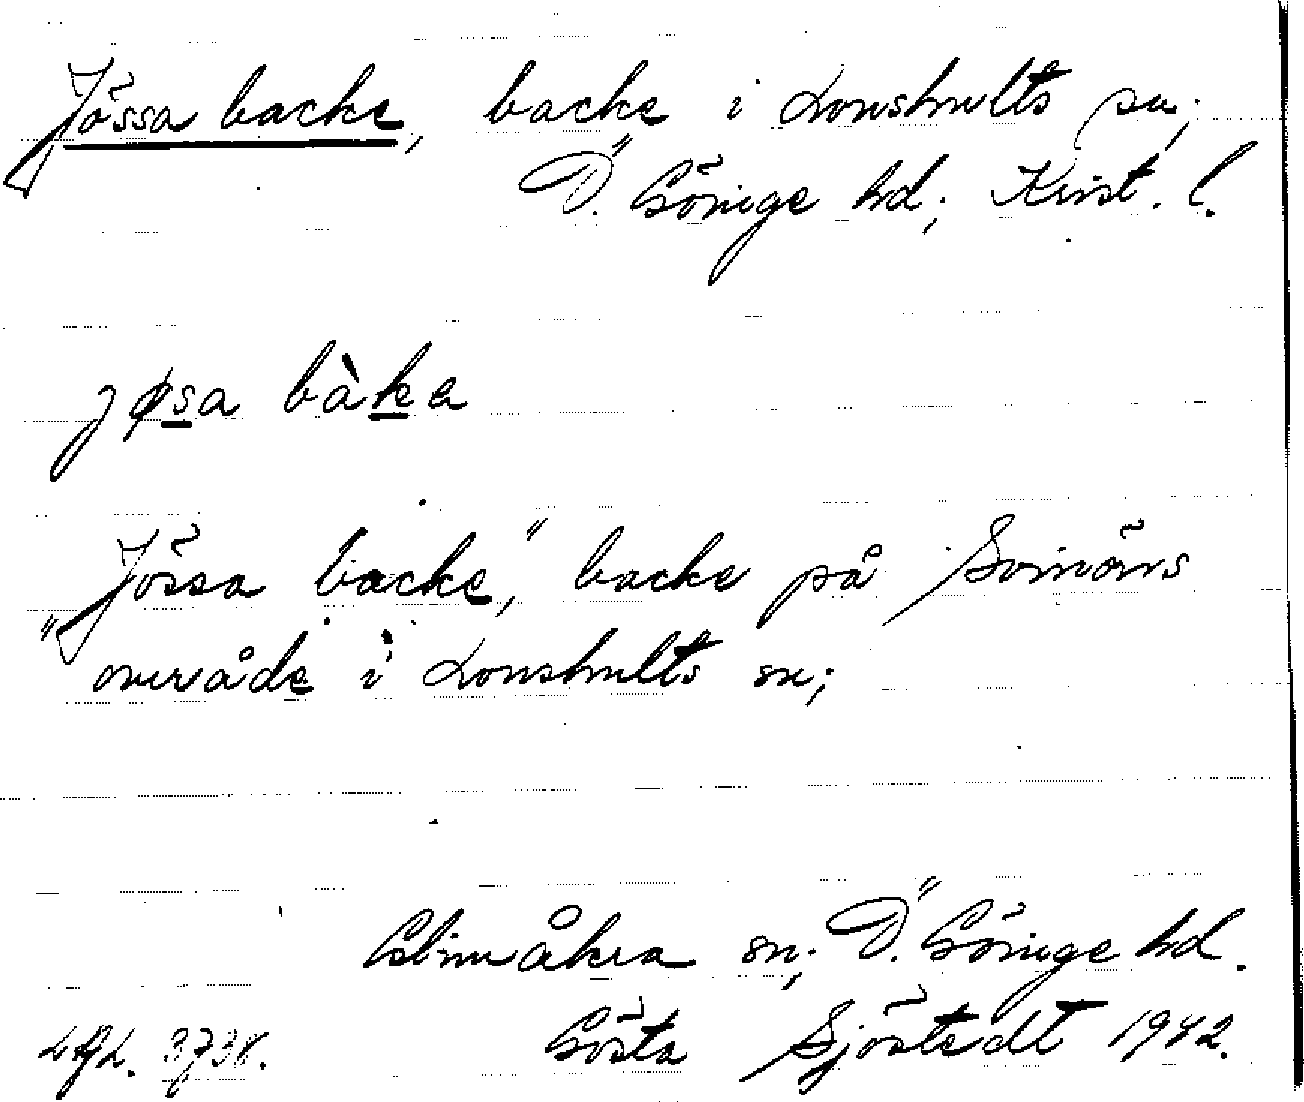 Jössa backe, backe i Lonshults sn;
Ö. Göinge hd; Krist. l.
jøsa bàka
"Jössa backe," backe på Svinöns
område i Lonshults sn;
Glimåkra sn; Ö. Göinge hd.
LAL. 3738. Gösta Sjöstedt 1942.